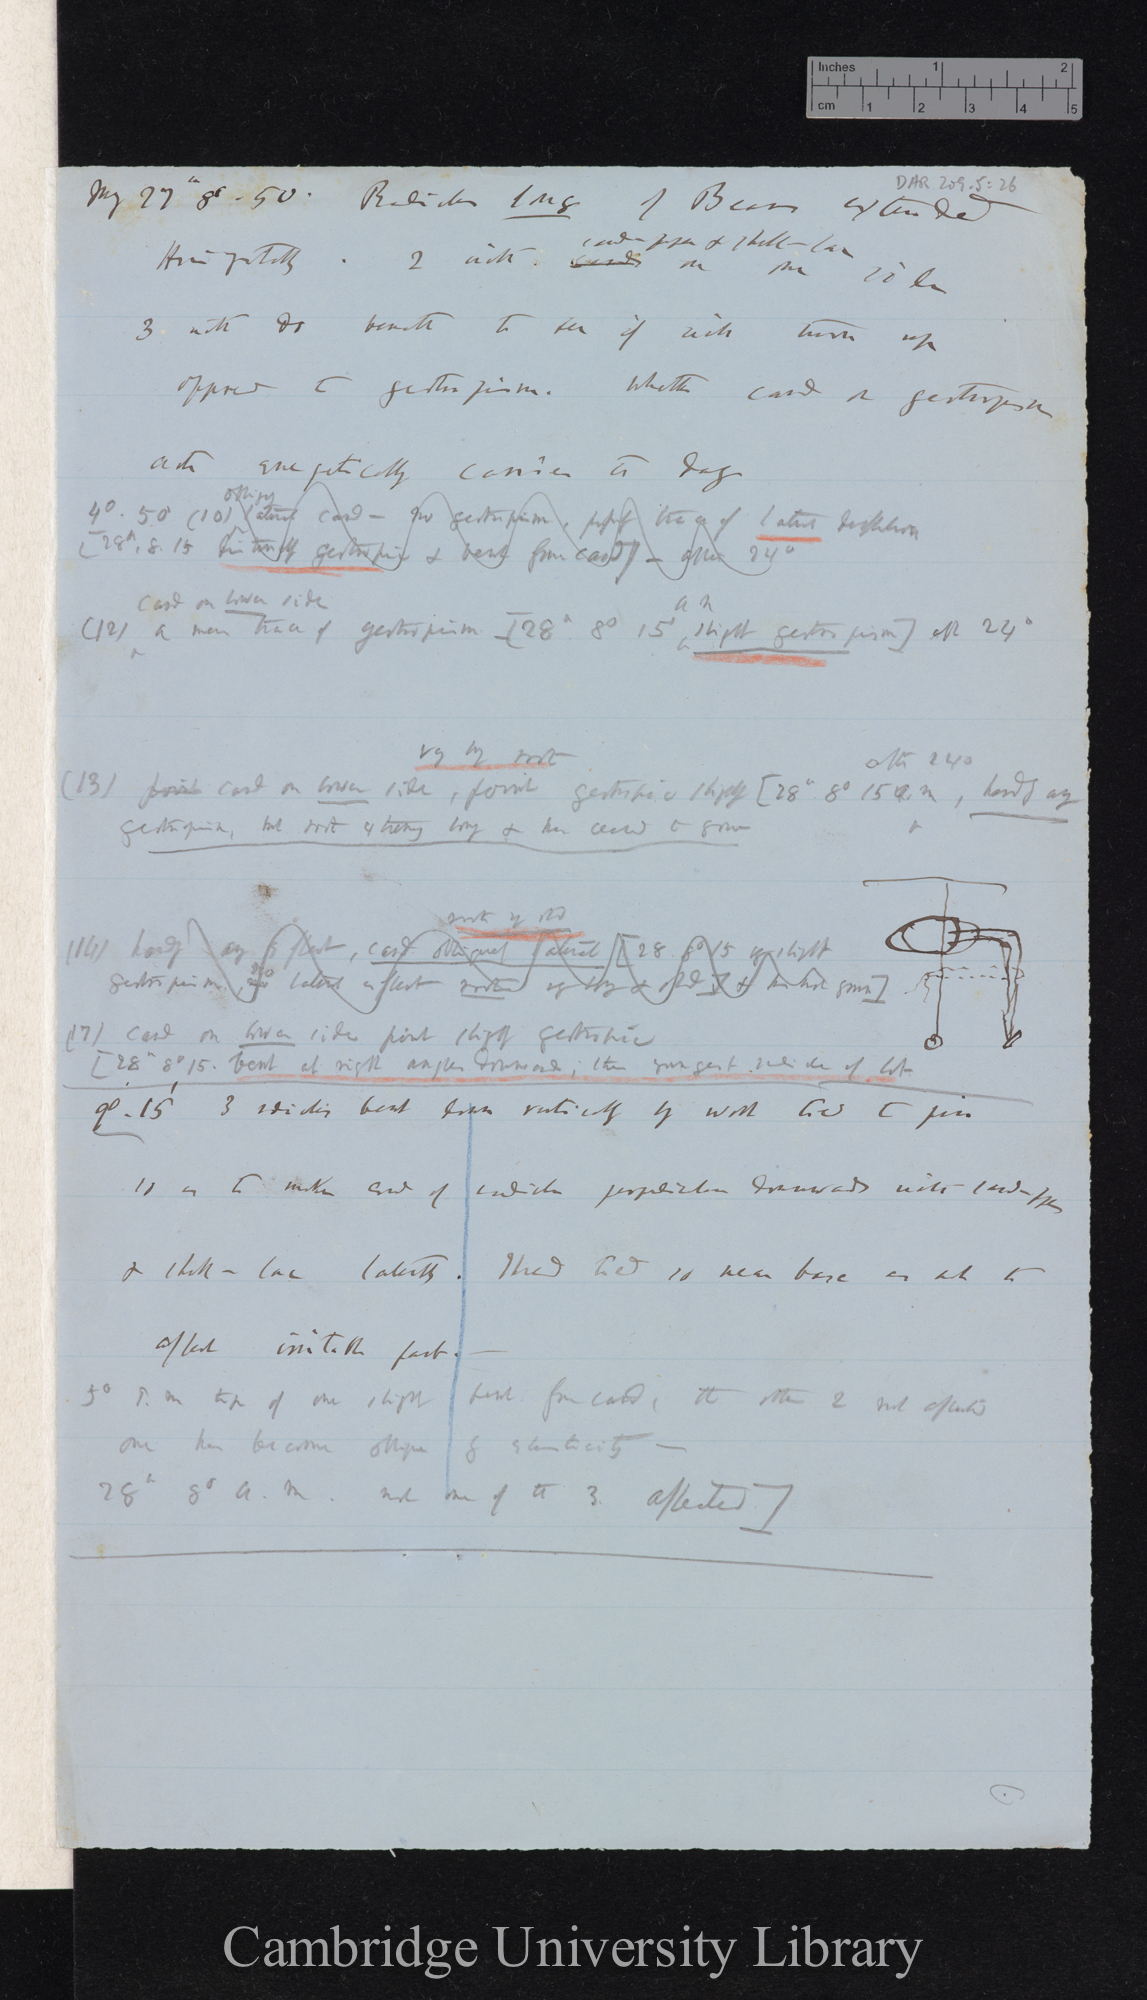 Inches 1 2
cm 1 2 3 4 5
DAR 209.5:26
May 27th 8°. 50'. Radicles long of Beans extended
Horizontally. 2 with cards card-paper & shell-lac on one side
3 with do beneath to see if will turn up
opposed to geotropism. Whether card or geotropism
acts energetically carries the day
4°. 50' (10) oblique lateral card — no geotropism, trace of lateral deflection
[28th. 8. 15 distinctly geotropic & bent from card] — after 24°
card on lower side
(12) a mere trace of geotropism [28th 8° 15' a m slight geotropism] after 24°
vy long root
after 24°
(13) point card on lower side, point geotropic slightly [28th 8° 15 a.m, hardly any
geotropism, but root extremely long & has ceased to grow
root vy old
(14) hardly any deflect, card oblique lateral [28. 8° 15 vy slight
geotropism, no lateral deflect root vy long & old & has not grown]
(17) card on lower side point slightly geotropic
[28th 8° 15. bent at right angles downwards; the youngest radicle of lot
9°. 15' 3 radicles bent down vertically by worsted tied to pin
so as to make end of radicle perpendicular downwards with card-paper
& shell-lac laterally. Thread tied so near base as not to
affect irritable part. —
5° P.m tip of one slight bent from card, the other 2 not affected
one has become oblique by elasticity —
28th 8° a.m. not one of the 3 affected]
Cambridge University Library